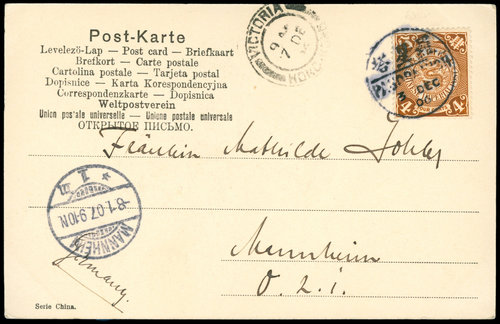 Post-Karte
Levelező-Lap — Post card — Briefkaart
Brefkort — Carte postale
Cartolina postale — Tarjeta postal
Dopisnice — Karta Korespondencyjna
Correspondenzkarte — Dopisnica
Weltpostverein
Union postale universelle — Unione postale universale
ОТКРЫТОЕ ПИСЬМО.
VICTORIA
7 DE
HONG
3 DEC
06
4
4
Fräulein Mathilde
Mannheim
O. 2. 1.
Germany.
MANNHEIM
8.1.07.9-10N.
1
Serie China.